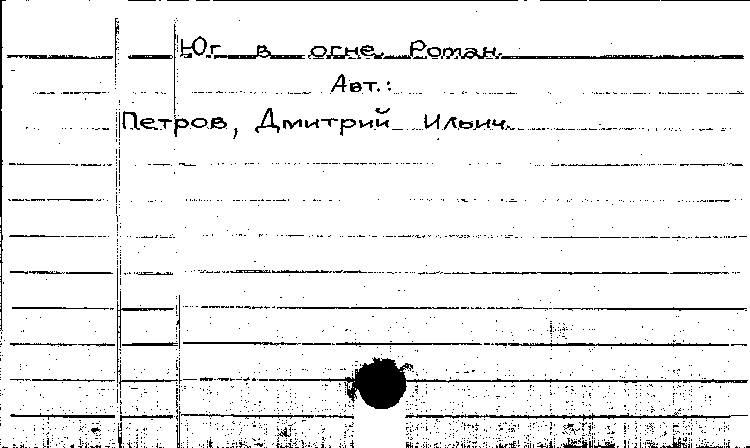 Юг в огне. Роман.
Авт.:
Петров, Дмитрий Ильич.